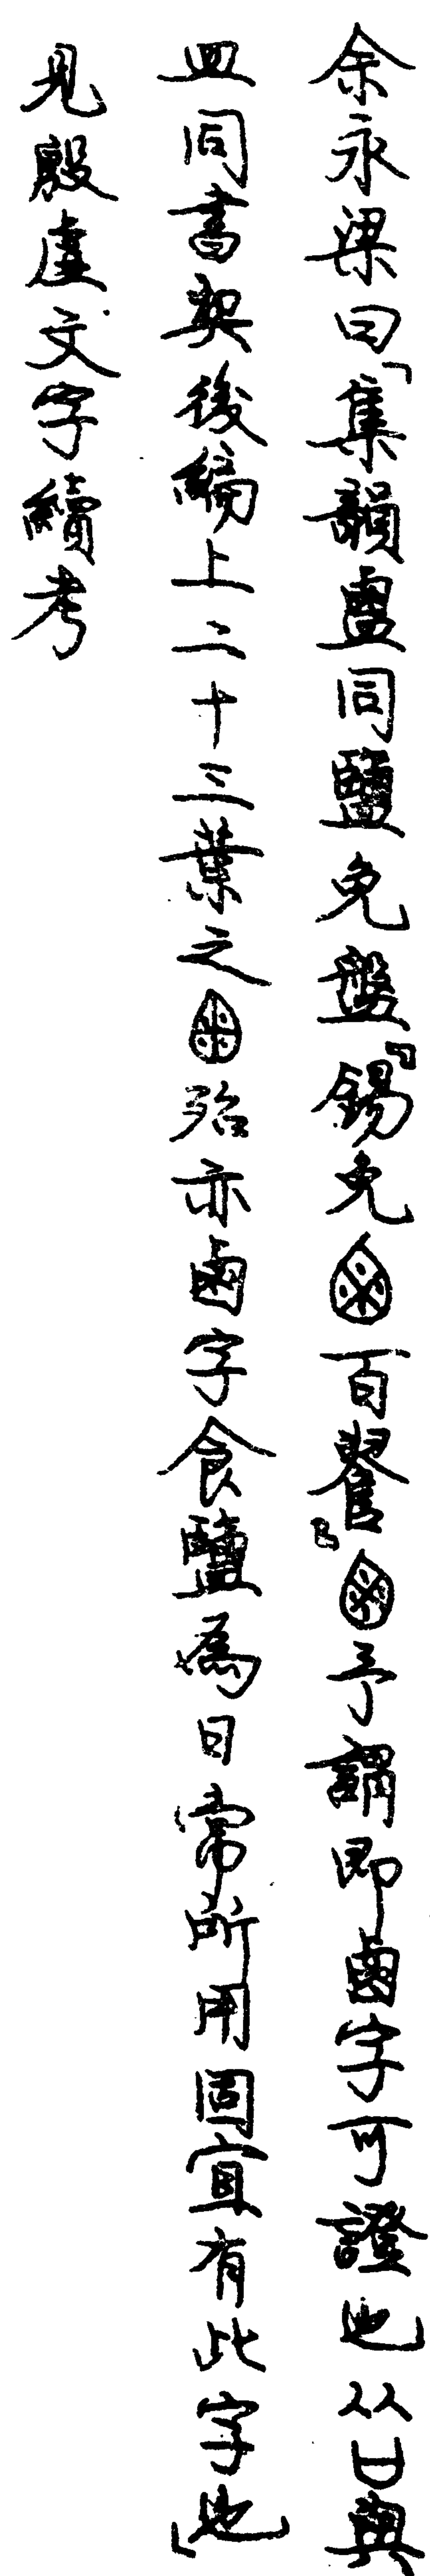 余永梁曰「集韻盬同鹽免盤『錫免百𦉢』予謂即鹵字可證也从凵與
皿同書契後編上二十三葉之殆亦鹵字食鹽為日常所用固宜有此字也」
見殷虛文字續考